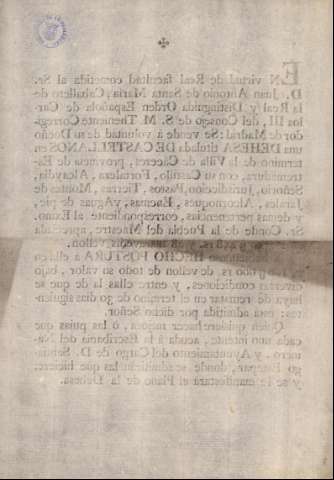 EN virtud de Real facultad cometida al Sr.
D. Juan Antonio de Santa Maria, Caballero de
la Real y Distinguida Orden Española de Car-
los III, del Consejo de S. M. Theniente Corregi-
dor de Madrid: Se vende à voluntad de su Dueño
una DEHESA titulada DE CASTELLANOS en
termino de la Villa de Caceres, provincia de Es-
tremadura, con su Castillo, Fortaleza, Alcaydia,
Señorio, jurisdiccion, Pastos, Tierras, Montes de
Jarales, Alcornoques, Encinas, y Aguas de pie,
y demas pertenencias, correspondiente al Exmo.
Sr. Conde de la Puebla del Maestre, apreciada
rs. y 28 maravedis vellon.
HECHO POSTURA à ella en
rs. de vellon de todo su valor, bajo
diversas condiciones, y entre ellas la de que se
haya de rematar en el termino de 30 dias siguien-
tes: esta admitida por dicho Señor.
Quien quisiere hacer mejora, ò las pujas que
cada uno intente, acuda à la Escribania del Nu-
mero, y Ayuntamiento del Cargo de D.
donde se admitiràn las que hiciere,
y se le manifestarà el Plano de la Dehesa.